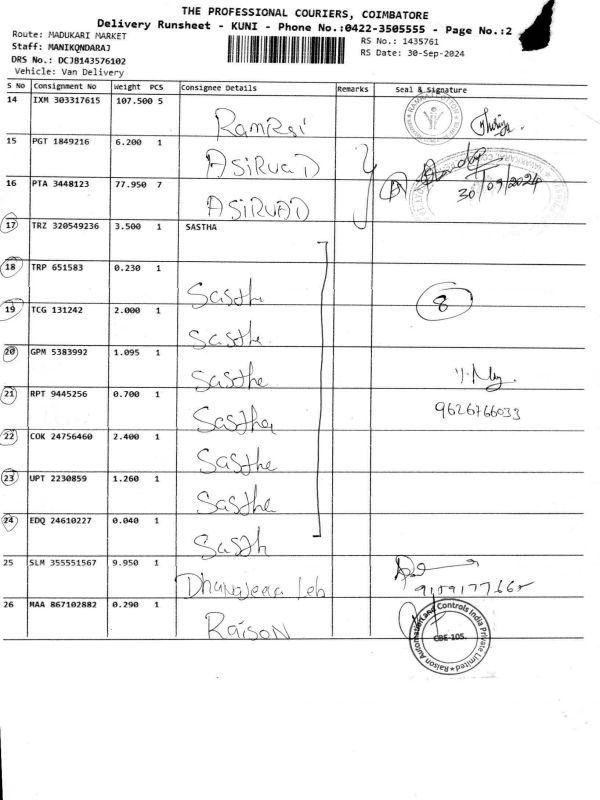 THE PROFESSIONAL COURIERS, COIMBATORE
Delivery Runsheet - KUNI - Phone No.:0422-3505555 - Page No.:2
Route: MADUKARI MARKET
RS No.: 1435761
Staff: MANIKQNDARAJ
RS Date: 30-Sep-2024
DRS No.: DCJB143576102
Vehicle: Van Delivery
S No Consignment No Weight PCS Consignee Details Remarks Seal & Signature
14 IXM 303317615 107.500 5
RAMRaj
15 PGT 1849216 6.200 1
ASIRVAD
30/09/2024
16 PTA 3448123 77.950 7
ASIRVAD
17 TRZ 320549236 3.500 1 SASTHA
18 TRP 651583 0.230 1
Sastha
8
19 TCG 131242 2.000 1
Sastha
20 GPM 5383992 1.095 1
Sasthe
21 RPT 9445256 0.700 1
Sastha
9626766033
22 COK 24756460 2.400 1
Sasthe
23 UPT 2230859 1.260 1
Sastha
24 EDQ 24610227 0.040 1
Sasth
25 SLM 355551567 9.950 1
Leb
26 MAA 867102882 0.290 1
RaisoN
Raison Automation and Controls India Private Limited
CBE-105.